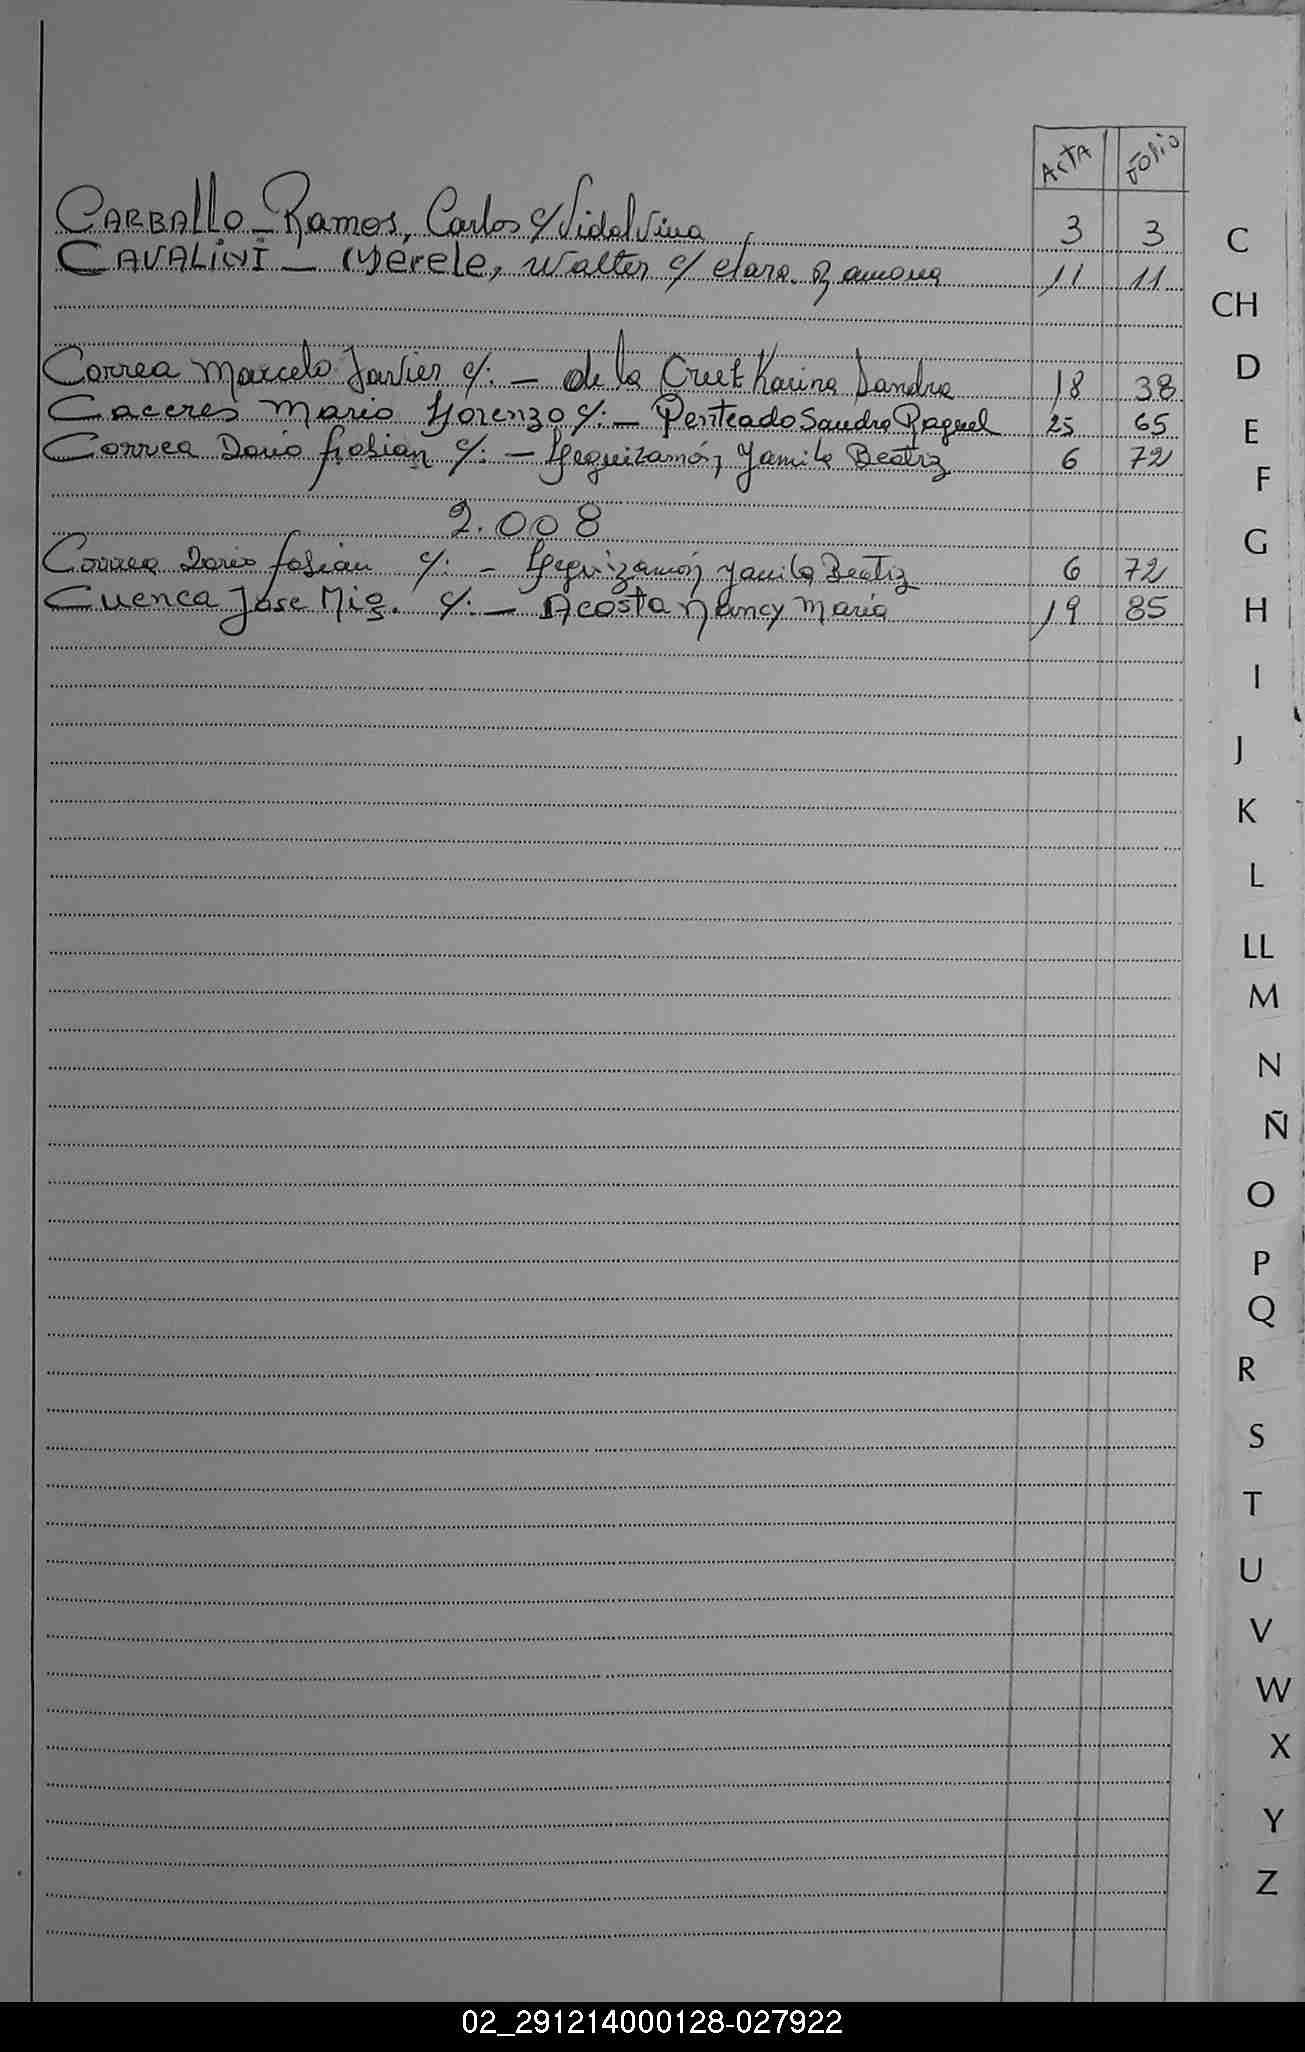 ACTA FOLIO
CARBALLO - Ramos, Carlos c/ Vidal Vina 3 3
CAVALINI - Merele, Walter c/ Clara Ramona 11 11
Correa Marcelo Javier c/: - de la Cruz Karina Sandra 18 38
Caceres Mario Lorenzo c/: - Penteado Sandra Raquel 25 65
Correa Dario Fabian c/: - Leguizamón, Yamila Beatriz 6 72
2.008
Correa Dario Fabian c/: - Leguizamón Yamila Beatriz 6 72
Cuenca Jose Mig. c/: - Acosta Nancy Maria 19 85
C
CH
D
E
F
G
H
I
J
K
L
LL
M
N
Ñ
O
P
Q
R
S
T
U
V
W
X
Y
Z
02_291214000128-027922